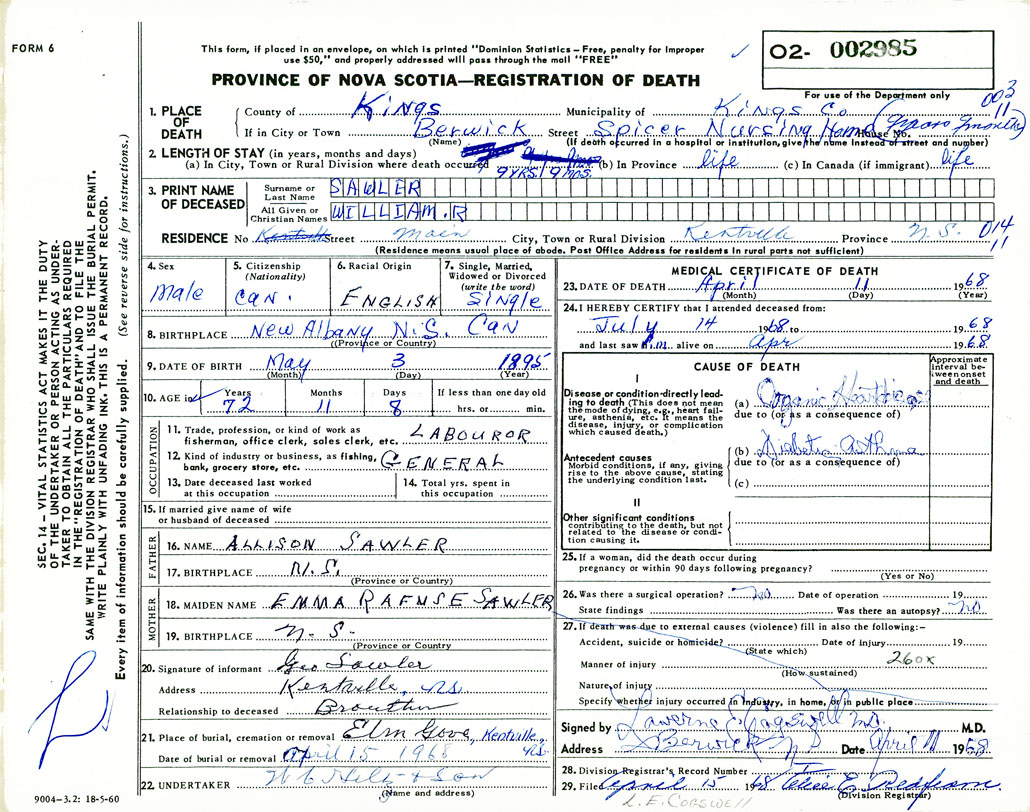 FORM 6
This form, if placed in an envelope, on which is printed "Dominion Statistics – Free, penalty for improper
use $50," and properly addressed will pass through the mail "FREE"
PROVINCE OF NOVA SCOTIA—REGISTRATION OF DEATH
O2- 002985
For use of the Department only
003
11
SEC. 14 – VITAL STATISTICS ACT MAKES IT THE DUTY
OF THE UNDERTAKER OR PERSON ACTING AS UNDER-
TAKER TO OBTAIN ALL THE PARTICULARS REQUIRED
IN THE "REGISTRATION OF DEATH" AND TO FILE THE
SAME WITH THE DIVISION REGISTRAR WHO SHALL ISSUE THE BURIAL PERMIT.
WRITE PLAINLY WITH UNFADING INK. THIS IS A PERMANENT RECORD.
Every item of information should be carefully supplied. (See reverse side for instructions.)
1. PLACE OF DEATH
County of Kings Municipality of Kings Co
If in City or Town Berwick Street Spicer Nursing Home House No.
(Name) (If death occurred in a hospital or institution, give the name instead of street and number)
2. LENGTH OF STAY (in years, months and days)
(a) In City, Town or Rural Division where death occurred 9 YRS. 9 mos. (b) In Province life (c) In Canada (if immigrant) life
3. PRINT NAME OF DECEASED
Surname or Last Name SAWLER
All Given or Christian Names WILLIAM.R
RESIDENCE No Kentville Street Main City, Town or Rural Division Kentville Province N.S. 014
11
(Residence means usual place of abode. Post Office Address for residents in rural parts not sufficient)
4. Sex
Male
5. Citizenship
(Nationality)
Can.
6. Racial Origin
ENGLISH
7. Single, Married,
Widowed or Divorced
(write the word)
Single
8. BIRTHPLACE New Albany N.S. Can
(Province or Country)
9. DATE OF BIRTH May 3 1895
(Month) (Day) (Year)
10. AGE in
Years Months Days If less than one day old
72 11 8 hrs. or min.
OCCUPATION
11. Trade, profession, or kind of work as
fisherman, office clerk, sales clerk, etc. LABOUROR
12. Kind of industry or business, as fishing,
bank, grocery store, etc. GENERAL
13. Date deceased last worked
at this occupation
14. Total yrs. spent in
this occupation
15. If married give name of wife
or husband of deceased
FATHER
16. NAME ALLISON SAWLER
17. BIRTHPLACE N.S.
(Province or Country)
MOTHER
18. MAIDEN NAME EMMA RAFUSE SAWLER
19. BIRTHPLACE N.S.
(Province or Country
20. Signature of informant Geo Sawler
Address Kentville, NS
Relationship to deceased Brouther
21. Place of burial, cremation or removal Elm Gove, Kentville, NS.
Date of burial or removal April 15 1968
22. UNDERTAKER & Son
(Name and address)
9004-3.2: 18-5-60
MEDICAL CERTIFICATE OF DEATH
23. DATE OF DEATH April 11 1968
(Month) (Day) (Year)
24. I HEREBY CERTIFY that I attended deceased from:
July 14 1968 to 1968
and last saw him alive on Apr 1968
CAUSE OF DEATH
Approximate
interval be-
tween onset
and death
I
Disease or condition directly lead-
ing to death (This does not mean
the mode of dying, e.g., heart fail-
ure, asthenia, etc. It means the
disease, injury, or complication
which caused death.)
(a) Organic Heart
due to (or as a consequence of)
Antecedent causes
Morbid conditions, if any, giving
rise to the above cause, stating
the underlying condition last.
(b) Diabetic Asthma
due to (or as a consequence of)
(c)
II
Other significant conditions
contributing to the death, but not
related to the disease or condi-
tion causing it.
25. If a woman, did the death occur during
pregnancy or within 90 days following pregnancy?
(Yes or No)
26. Was there a surgical operation? No Date of operation 19
State findings Was there an autopsy? No
27. If death was due to external causes (violence) fill in also the following:–
Accident, suicide or homicide? Date of injury 19
(State which)
Manner of injury 260x
(How sustained)
Nature of injury
Specify whether injury occurred in Industry, in home, or in public place
Signed by Laverne Cogswell M.D. M.D.
Address Berwick NS Date April 11 1968
28. Division Registrar's Record Number
29. Filed April 15 1968
(Division Registrar)
L. E. COGSWELL